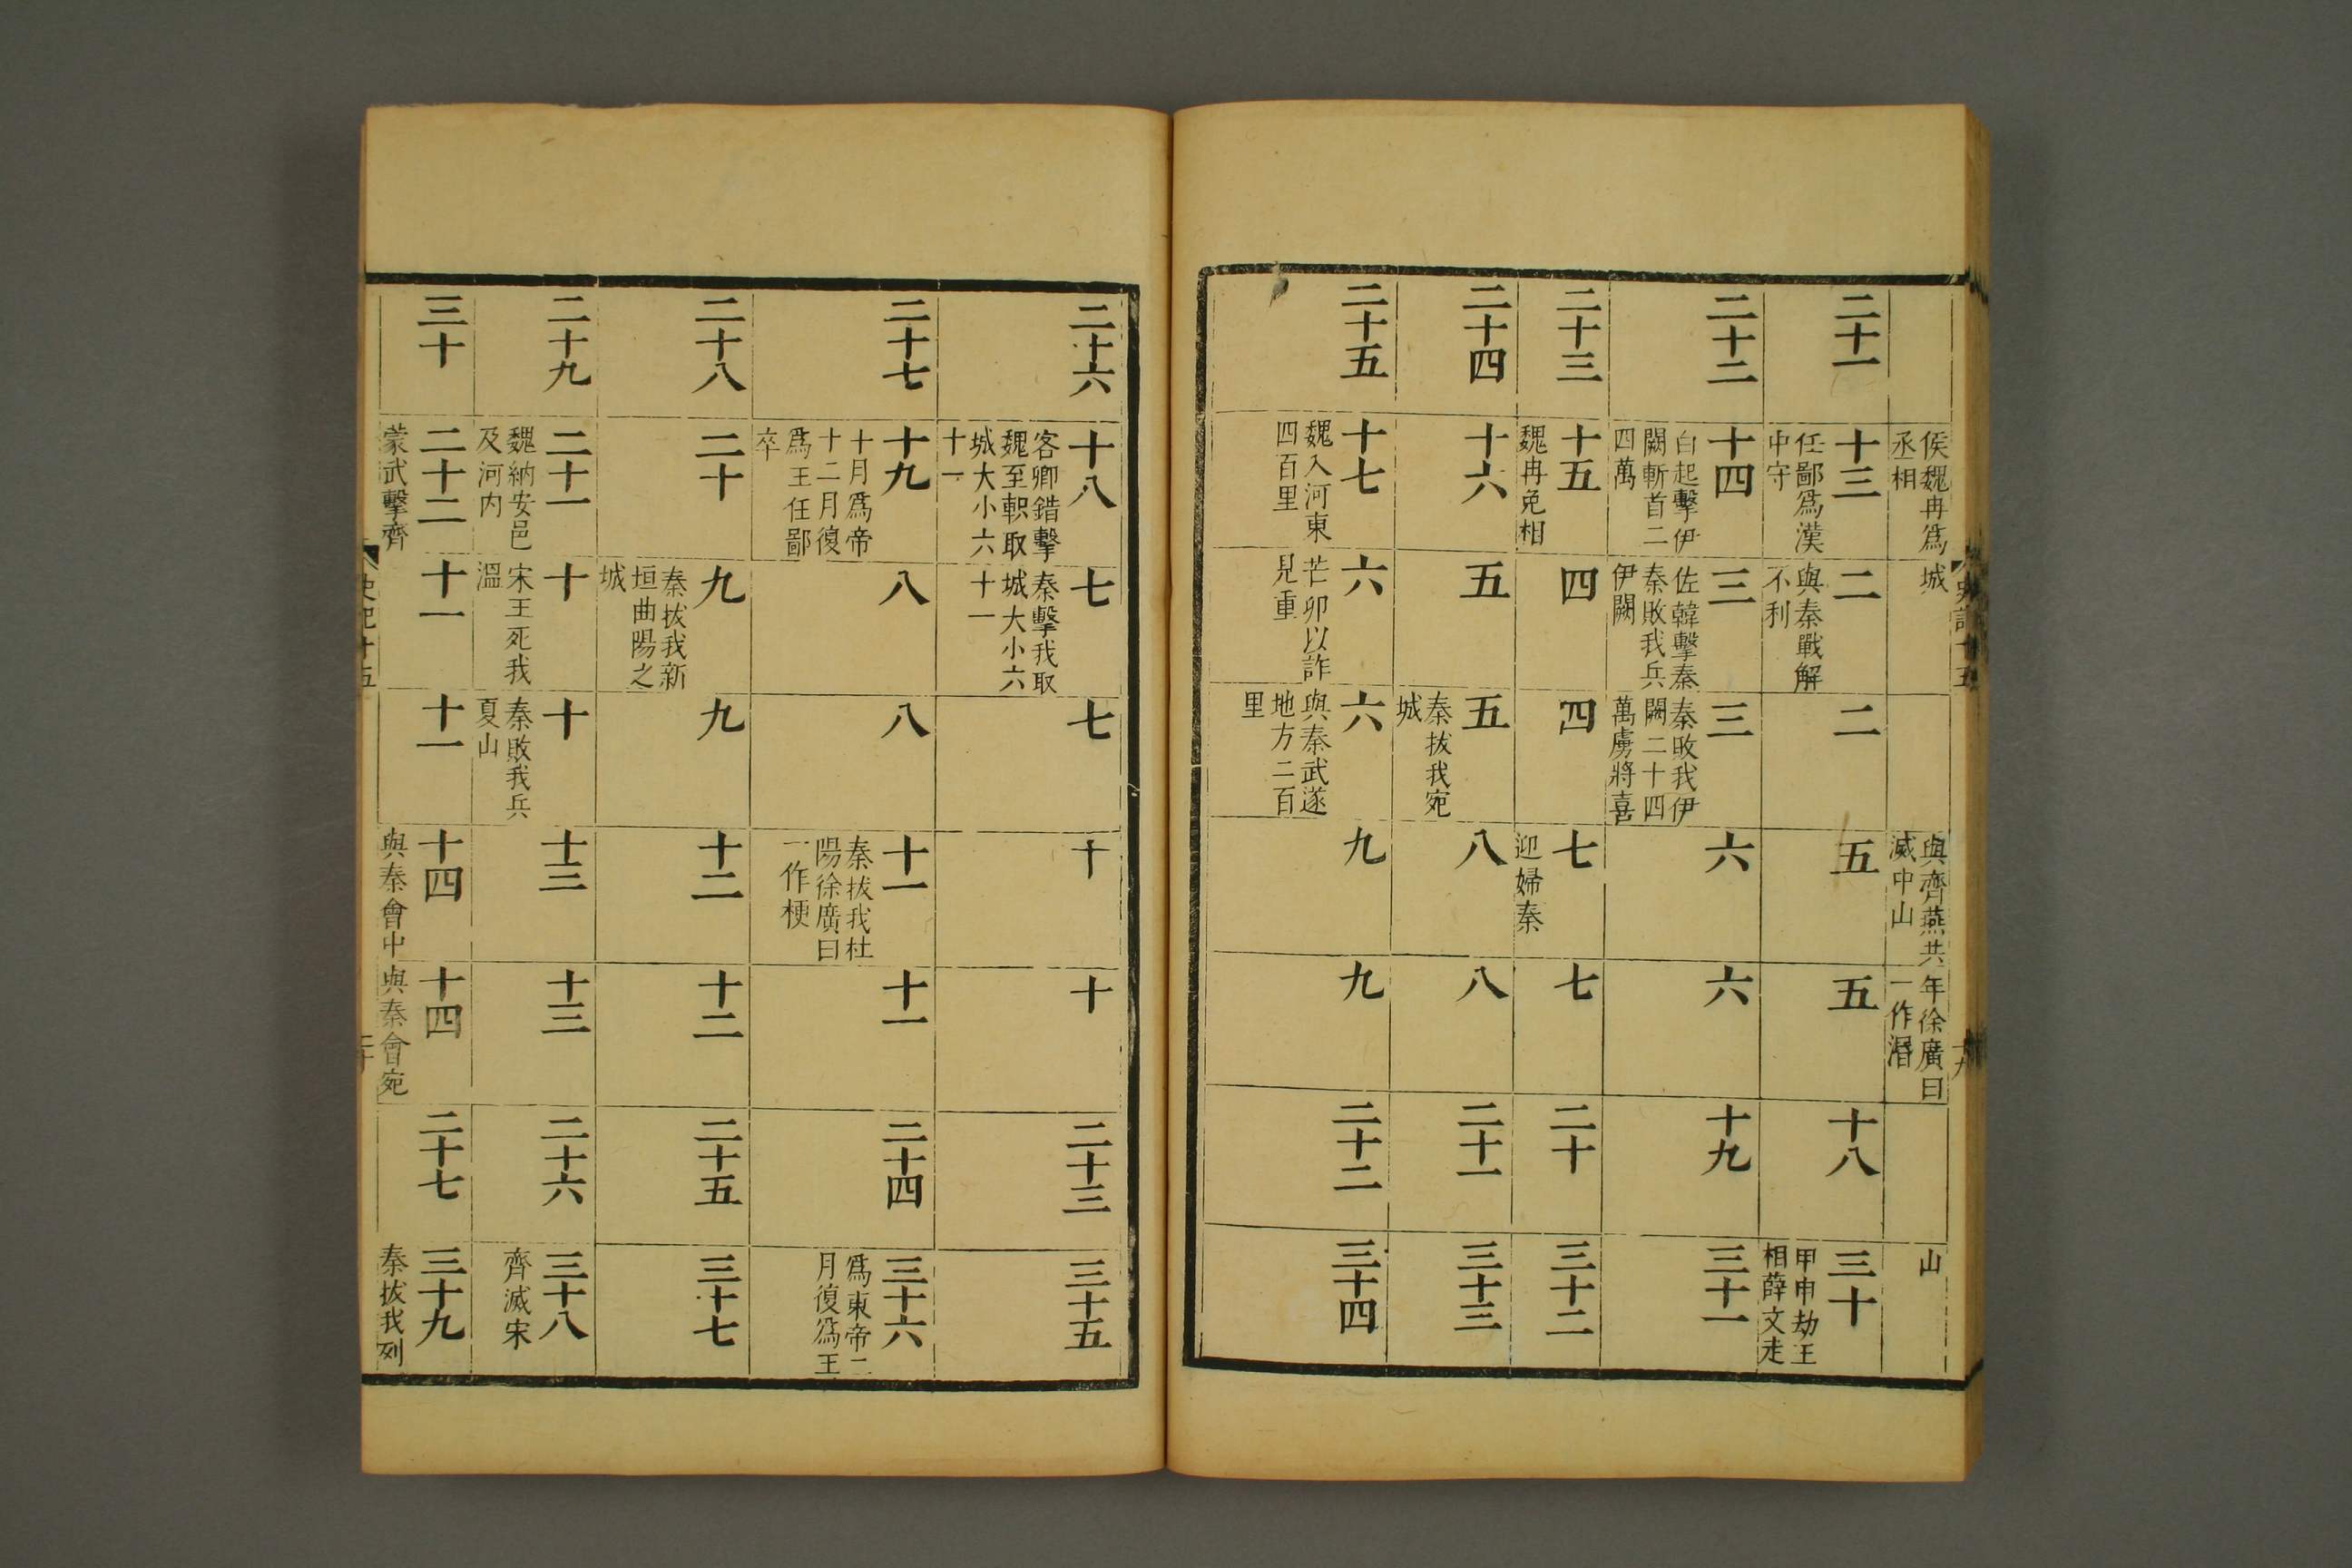 史記十五
十九
侯魏冉爲
丞相
城
與齊燕共
滅中山
年徐廣曰
一作湣
山
二十一
十三
任鄙爲漢
中守
二
與秦戰解
不利
二
五
五
十八
三十
甲申劫王
相薛文走
二十二
十四
白起擊伊
闕斬首二
四萬
三
佐韓擊秦
秦敗我兵
伊闕
三
秦敗我伊
闕二十四
萬虜將喜
六
六
十九
三十一
二十三
十五
魏冉免相
四
四
七
迎婦秦
七
二十
三十二
二十四
十六
五
五
秦拔我宛
城
八
八
二十一
三十三
二十五
十七
魏入河東
四百里
六
芒卯以詐
見重
六
與秦武遂
地方二百
里
九
九
二十二
三十四
二十六
十八
客卿錯擊
魏至軹取
城大小六
十一
七
秦擊我取
城大小六
十一
七
十
十
二十三
三十五
二十七
十九
十月爲帝
十二月復
爲王任鄙
卒
八
八
十一
秦拔我杜
陽徐廣曰
一作梗
十一
二十四
三十六
爲東帝二
月復爲王
二十八
二十
九
秦拔我新
垣曲陽之
城
九
十二
十二
二十五
三十七
二十九
二十一
魏納安邑
及河内
十
宋王死我
溫
十
秦敗我兵
夏山
十三
十三
二十六
三十八
齊滅宋
三十
二十二
蒙武擊齊
十一
十一
十四
與秦會中
十四
與秦會宛
二十七
三十九
秦拔我列
史記十五
二十